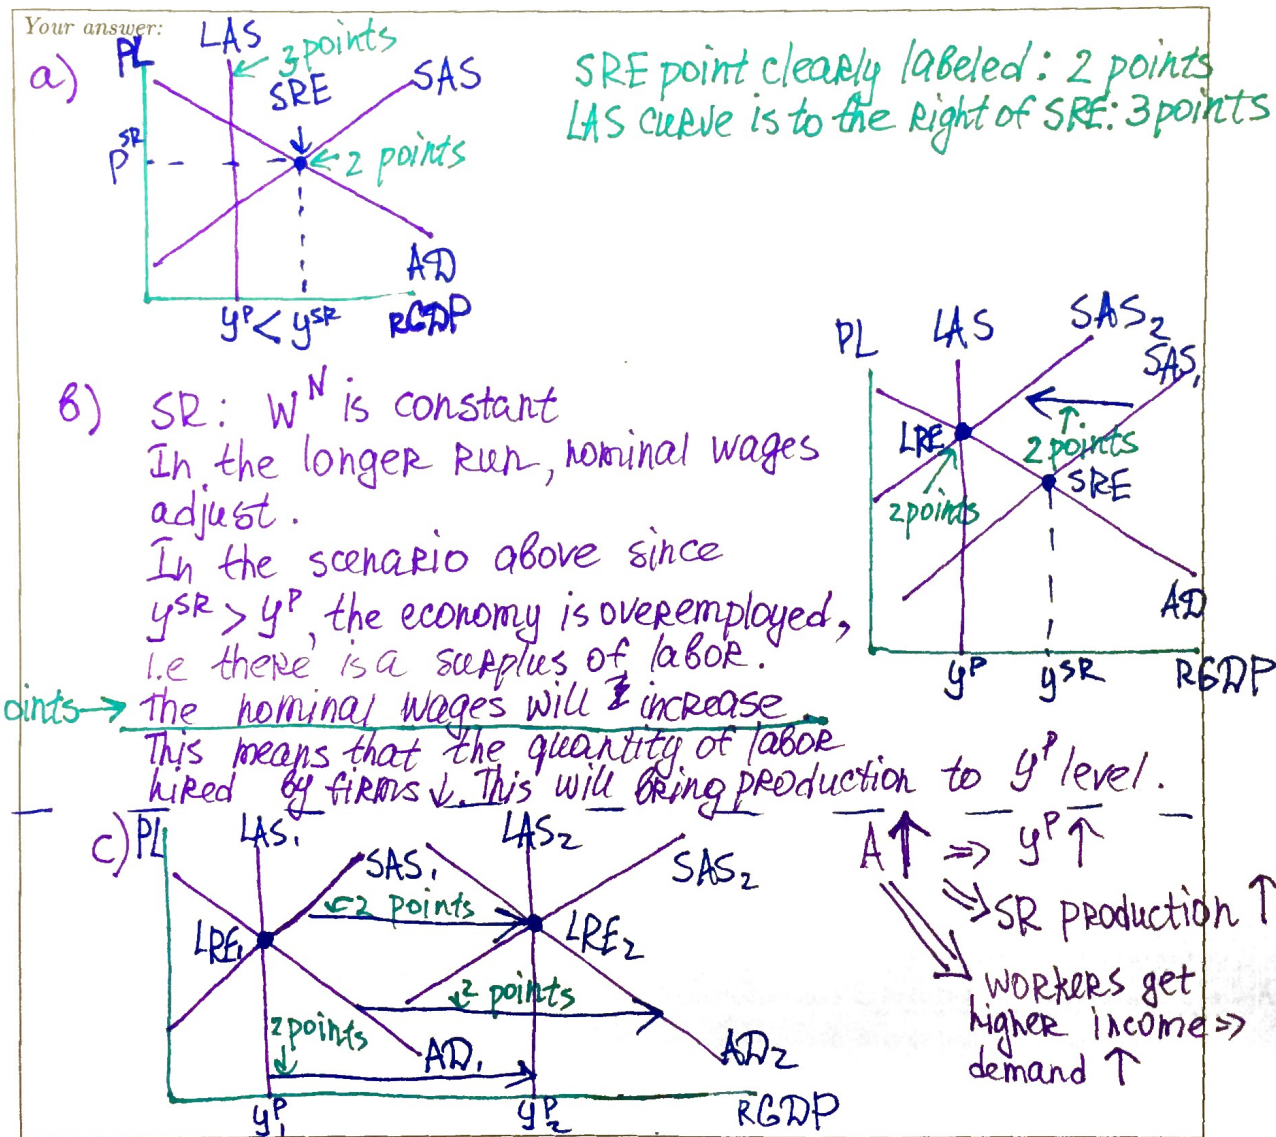 Your answer:
a)
PL
LAS
3 points
SRE
SAS
P^SR
2 points
AD
y^P < y^SR
RGDP
SRE point clearly labeled: 2 points
LAS curve is to the right of SRE: 3 points
b) SR: W^N is constant
In the longer run, nominal wages
adjust.
In the scenario above since
y^SR > y^P, the economy is overemployed,
i.e there is a surplus of labor.
oints → the nominal wages will increase.
This means that the quantity of labor
hired by firms ↓. This will bring production to y^P level.
PL
LAS
SAS₂
SAS₁
LRE
2 points
SRE
2 points
AD
y^P
y^SR
RGDP
c)
PL
LAS₁
LAS₂
SAS₁
SAS₂
2 points
LRE₁
LRE₂
2 points
2 points
AD₁
AD₂
y₁^P
y₂^P
RGDP
A ↑ ⇒ y^P ↑
⇒ SR production ↑
⇒ workers get
higher income ⇒
demand ↑